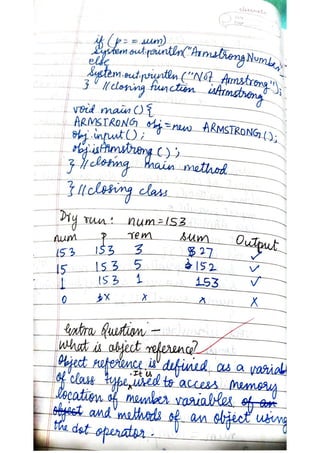 if (p == sum)
System.out.println("Armstrong Number
else
System.out.println("Not Armstrong");
} // closing function isArmstrong
void main() {
ARMSTRONG obj = new ARMSTRONG();
obj.input();
obj.isArmstrong();
} // closing main method
} // closing class
Dry run: num=153
num p rem sum Output
153 153 3 27 ✓
15 153 5 152 ✓
1 153 1 153 ✓
0 x x x X
Extra Question —
What is object reference?
Object reference is defined as a variabl
of class type. It is used to access memory
location of member variables of an
object and methods of an object using
the dot operator.